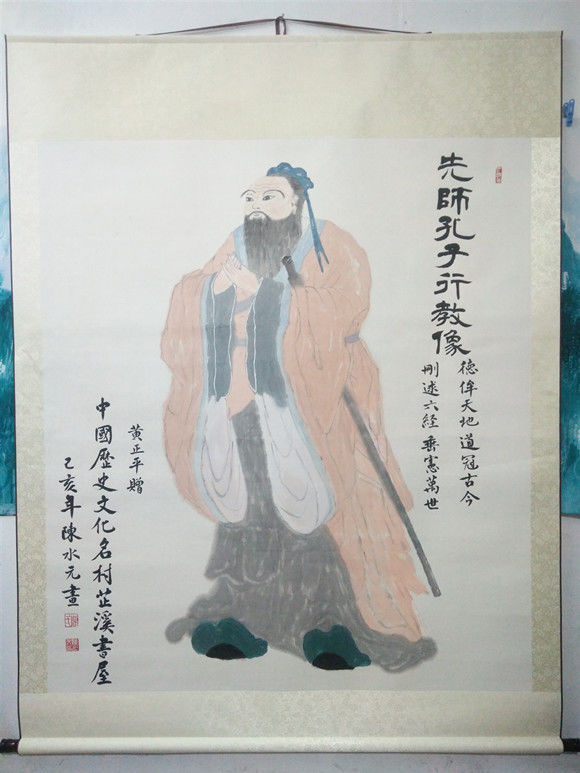 先師孔子行教像
德侔天地道冠古今
刪述六経垂憲萬世
黄正平贈
中國歷史文化名村芷溪書屋
乙亥年陳水元畫